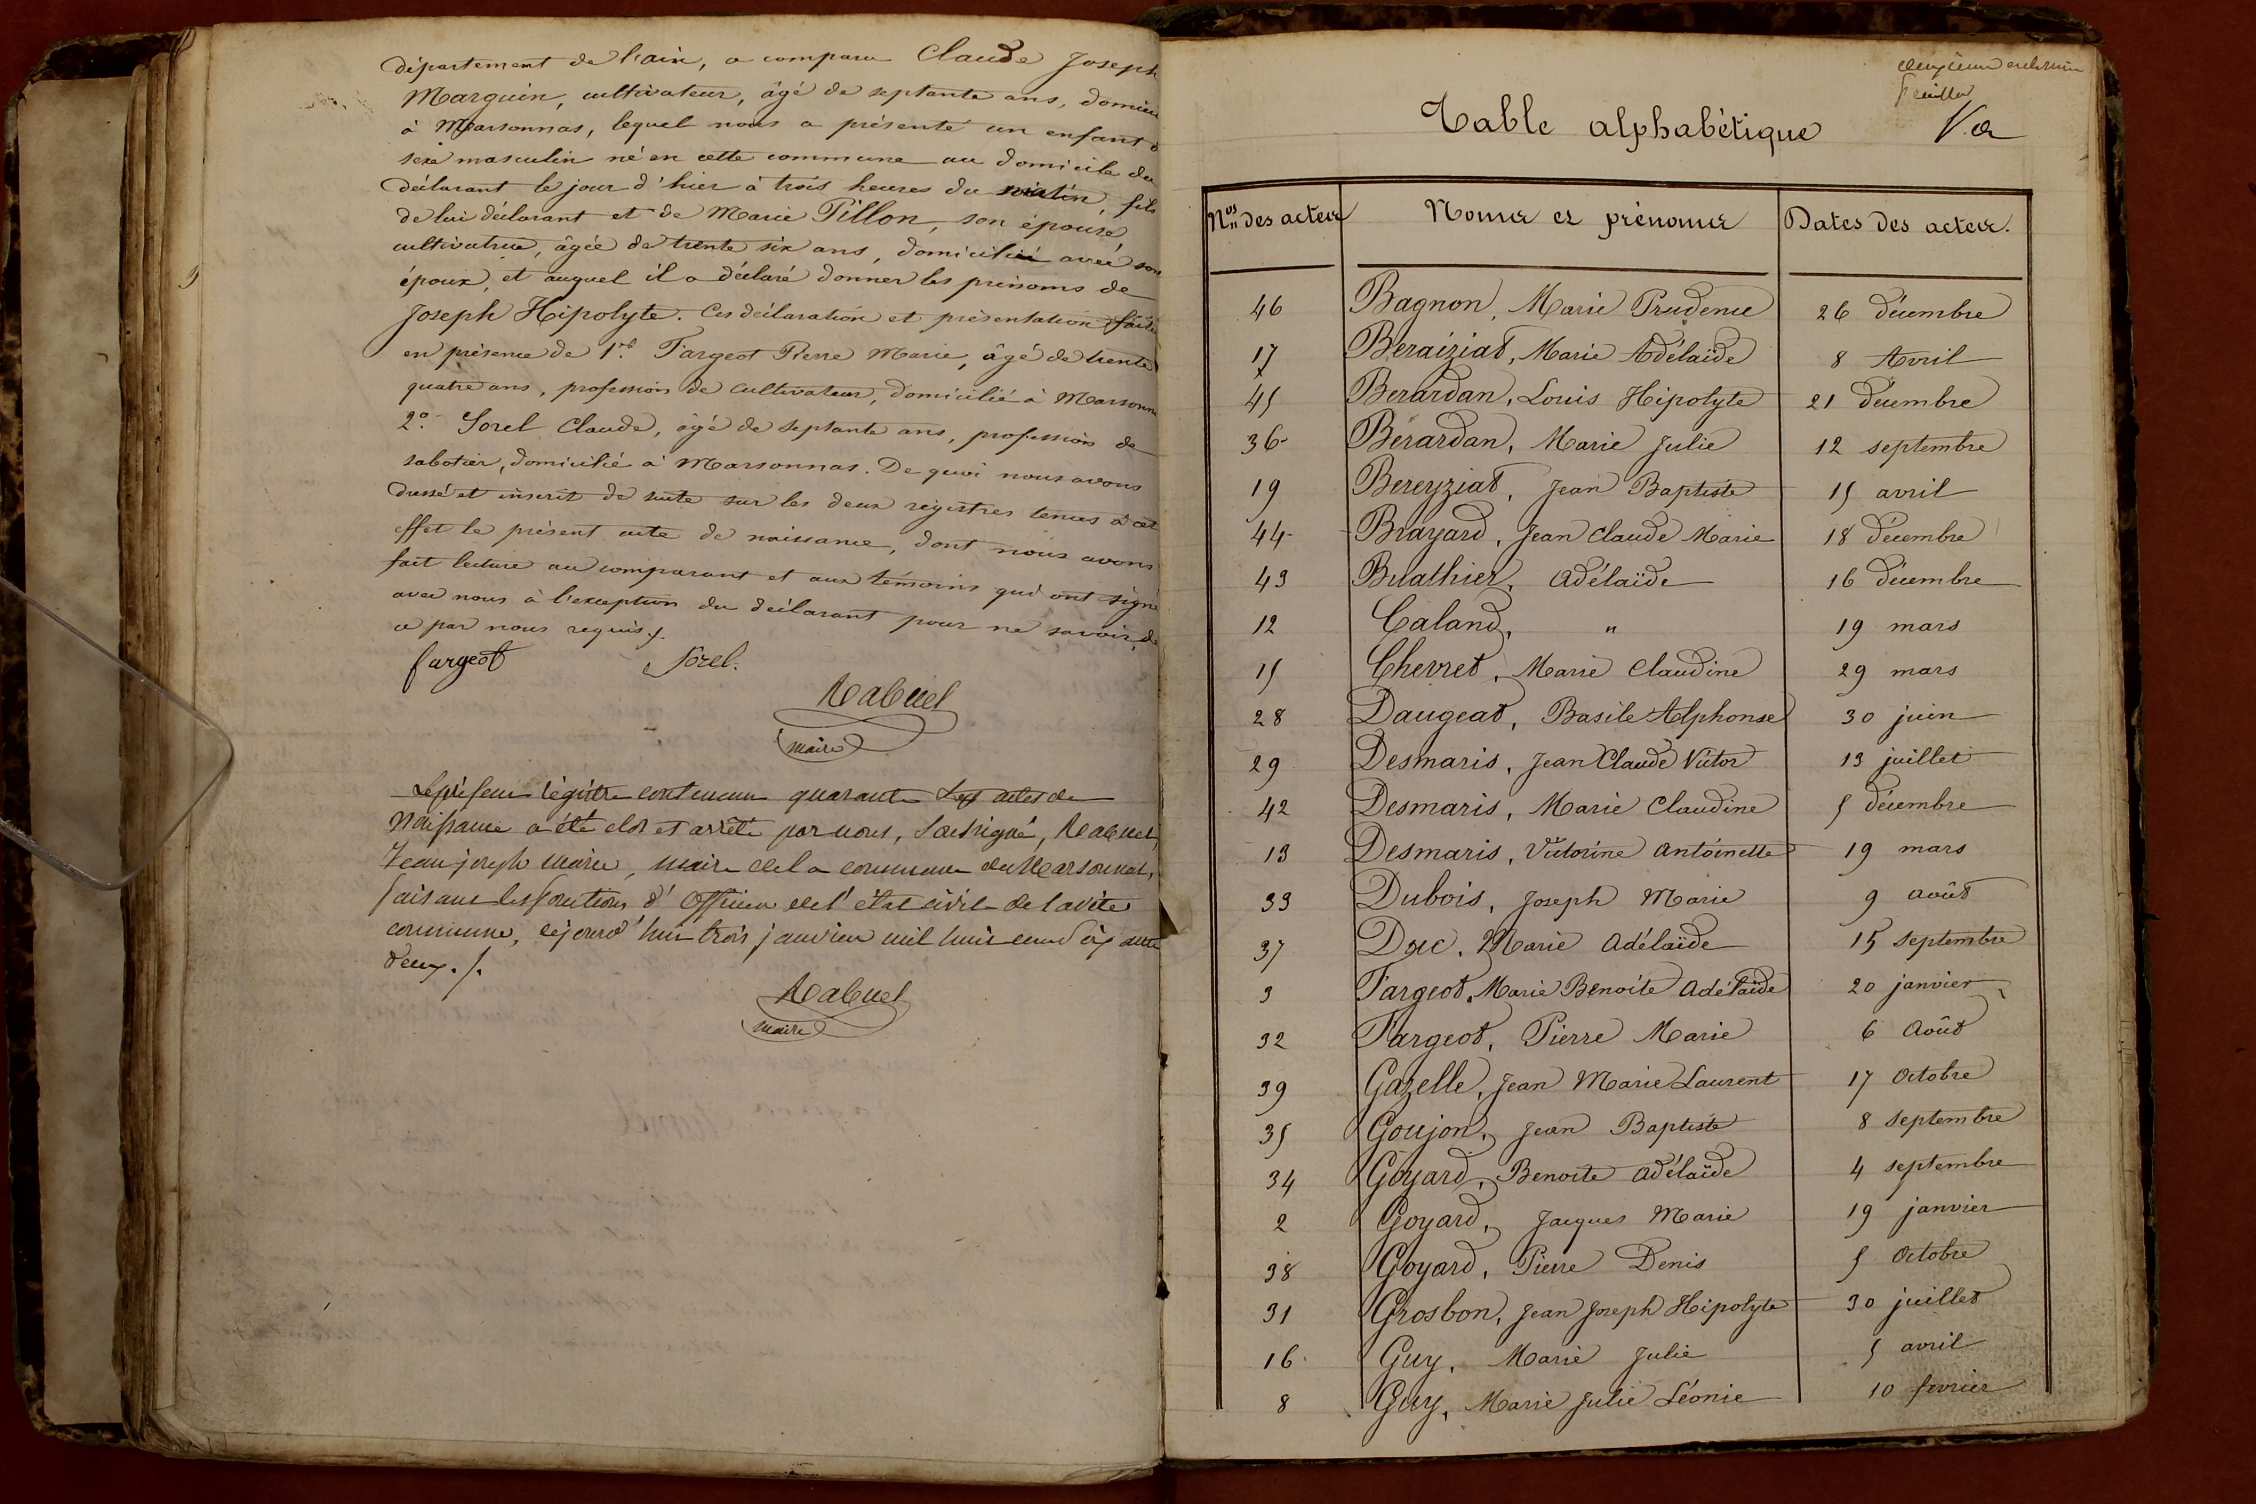 département de l'ain, a comparu Claude Joseph
Marguin, cultivateur, âgé de septante ans, domicilié
à Marsonnas, lequel nous a présenté un enfant d
sexe masculin né en cette commune au domicile du
déclarant le jour d'hier à trois heures du matin, fils
de lui déclarant et de Marie Pillon, son épouse,
cultivatrice, âgée de trente six ans, domiciliée avec son
époux, et auquel il a déclaré donner les prénoms de
Joseph Hipolyte. Ces déclaration et présentation faites
en présence de 1º. Fargeot Pierre Marie, âgé de trente
quatre ans, profession de cultivateur, domicilié à Marsonn
2º. Sorel Claude, âgé de septante ans, profession de
sabotier, domicilié à Marsonnas. De quoi nous avons
dressé et inscrit de suite sur les deux registres tenus à cet
effet le présent acte de naissance, dont nous avons
fait lecture au comparant et aux témoins qui ont signé
avec nous à l'exception du déclarant pour ne savoir, de
ce par nous requis ./.
fargeot Sorel.
Rabuel
maire
Le présent régistre contenant quarante actes de
Naissance a été clos et arrêté par nous, Soussigné, Rabuel,
Jean joseph marie, maire de la commune de Marsonnas,
faisant les fonctions d'officier de l'état civil de la dite
commune, cejourd'hui trois janvier mil huit cent soixante
deux ./.
Rabuel
maire
deuxième et dernier
feuillet
Table alphabétique
Nos des actes Noms et prénoms Dates des actes.
46 Bagnon, Marie Prudence 26 décembre
17 Beraiziat, Marie Adélaïde 8 Avril
45 Berardan, Louis Hipolyte 21 décembre
36 Bérardan, Marie Julie 12 septembre
19 Bereyziat, Jean Baptiste 15 avril
44 Brayard, Jean Claude Marie 18 décembre
43 Buathier, Adélaïde 16 décembre
12 Caland, " 19 mars
15 Chevret, Marie Claudine 29 mars
28 Daugeat, Basile Alphonse 30 juin
29 Desmaris, Jean Claude Victor 13 juillet
42 Desmaris, Marie Claudine 5 décembre
13 Desmaris, Victorine Antoinette 19 mars
33 Dubois, Joseph Marie 9 août
37 Duc, Marie Adélaïde 15 septembre
3 Fargeot, Marie Benoite Adélaïde 20 janvier
32 Fargeot, Pierre Marie 6 Août
39 Gazelle, Jean Marie Laurent 17 Octobre
35 Goujon, Jean Baptiste 8 septembre
34 Goyard, Benoite Adélaïde 4 septembre
2 Goyard, Jacques Marie 19 janvier
38 Goyard, Pierre Denis 5 Octobre
31 Grosbon, Jean Joseph Hipolyte 30 juillet
16 Guy, Marie Julie 5 avril
8 Guy, Marie Julie Léonie 10 fevrier